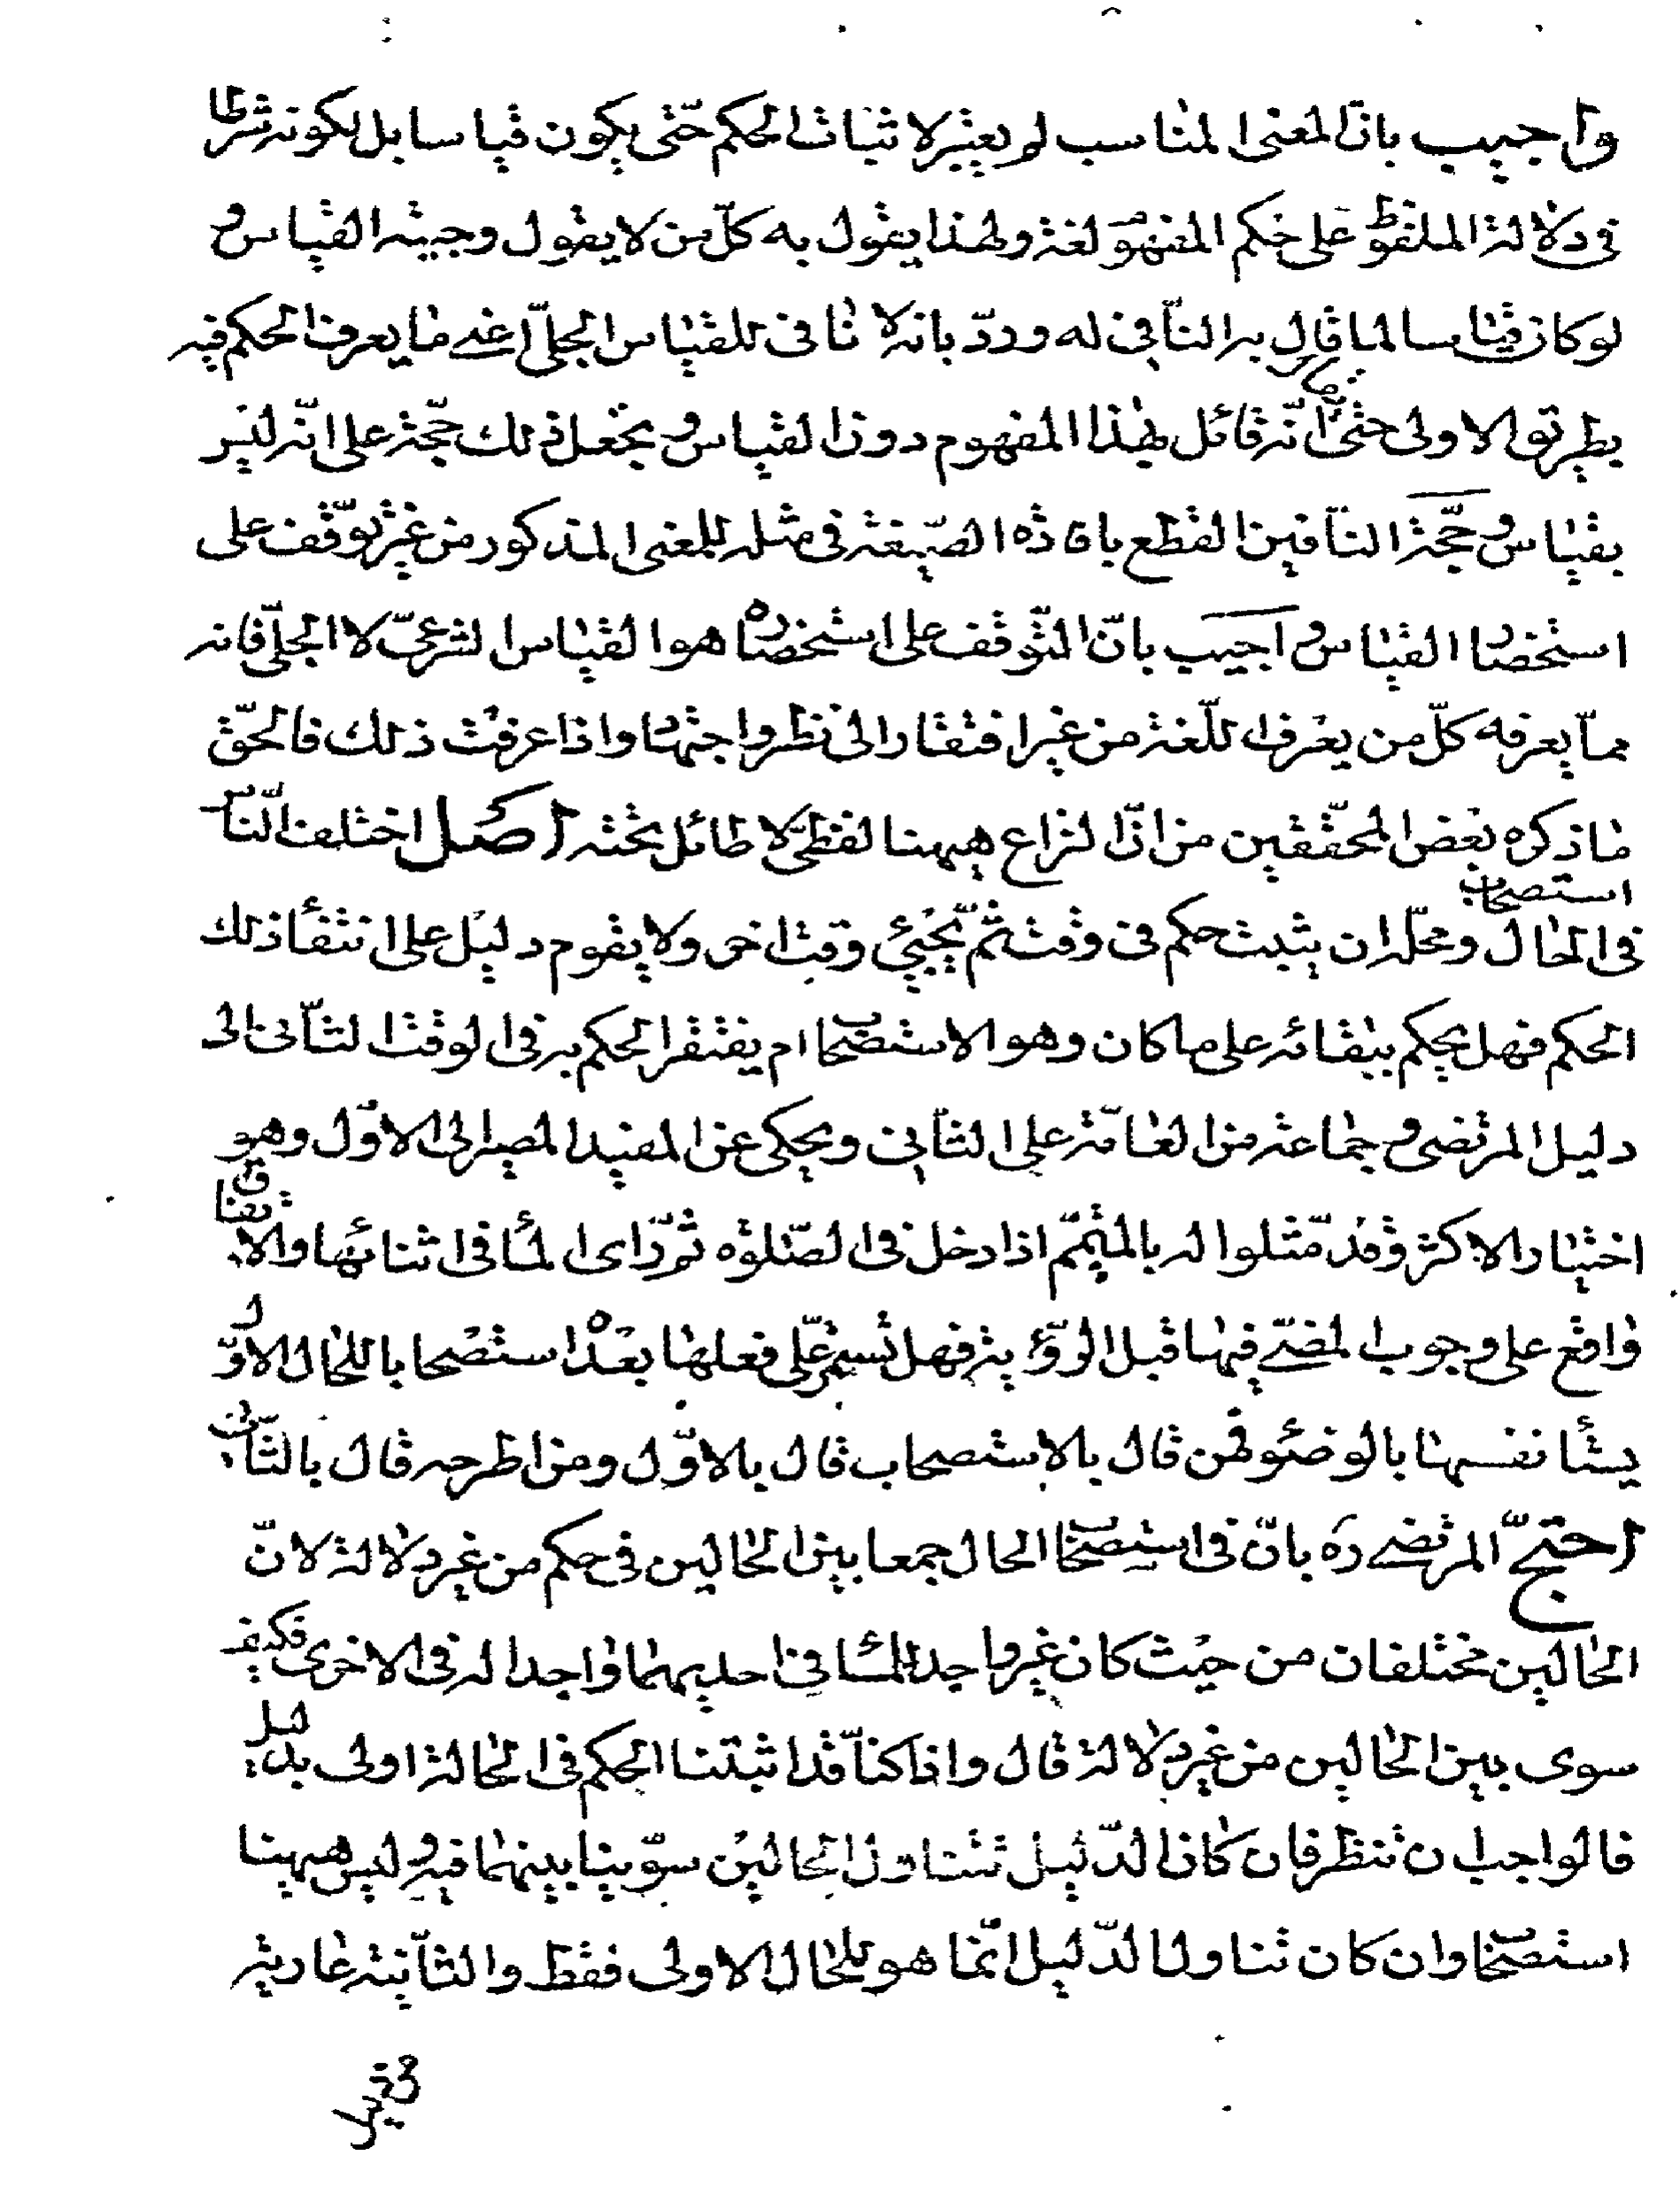 واجيب بانّ المعنى المناسب لم يعتبر لاثبات الحكم حتّى يكون قياسا بل لكونه شرطا
فى دلالة الملفوظ على حكم المفهوم لغة ولهذا يقول به كلّ من لا يقول بحجيّة القياس و
لو كان قياسا لما قال به النّافى له وردّ بانه لا نافى للقياس الجلىّ اعنى ما يعرف الحكم فيه
بطريق الاولى حتّى انّه قائل بهذا المفهوم دون القياس و يجعل ذلك حجّة على انّه ليس
بقياس و حجّة النّافين القطع بافادة الصّيغة فى مثله للمعنى المذكور من غير توقّف على
استحضار القياس و اجيب بانّ التّوقف على استحضاره هو القياس الشرعىّ لا الجلىّ فانه
ممّا يعرفه كلّ من يعرف اللّغة من غير افتقار الى نظر واجتهاد واذا عرفت ذلك فالحقّ
ما ذكره بعض المحقّقين من انّ النزاع هيهنا لفظىّ لا طائل تحته اصل اختلف النّاس
فى استصحاب الحال ومحلّه ان يثبت حكم فى وقت ثمّ يجيئ وقت اخر ولا يقوم دليل على انتفاء ذلك
الحكم فهل يحكم ببقائه على ما كان وهو الاستصحاب ام يفتقر الحكم به فى الوقت الثّانى الى
دليل المرتضى و جماعة من العامّة على الثّانى ويحكى عن المفيد المصير الى الاوّل وهو
اختيار الاكثر وقد مّثلوا له بالمتيمّم اذا دخل فى الصّلوة ثمّ راى الماء فى اثنائها والاتّفاق
واقع على وجوب المضىّ فيها قبل الرّؤية فهل يستمرّ على فعلها بعده استصحابا للحال الاوّل
يستأنفها بالوضوء فمن قال بالاستصحاب قال بالاوّل ومن اطرحه قال بالثّانى
احتجّ المرتضى ره بانّ فى استصحاب الحال جمعا بين الحالين فى حكم من غير دلالة لانّ
الحالين مختلفان من حيث كان غير واجد للماء فى احديهما واجدا له فى الاخرى فكيف
سوى بين الحالين من غير دلالة قال واذا كنّا قد اثبتنا الحكم فى الحالة اولى بدليل
فالواجب ان ننظر فان كان الدّليل تتناول الحالين سوّينا بينهما فيه و ليس هيهنا
استصحاب وان كان تناول الدّليل انّما هو للحال الاولى فقط والثّانية عارية